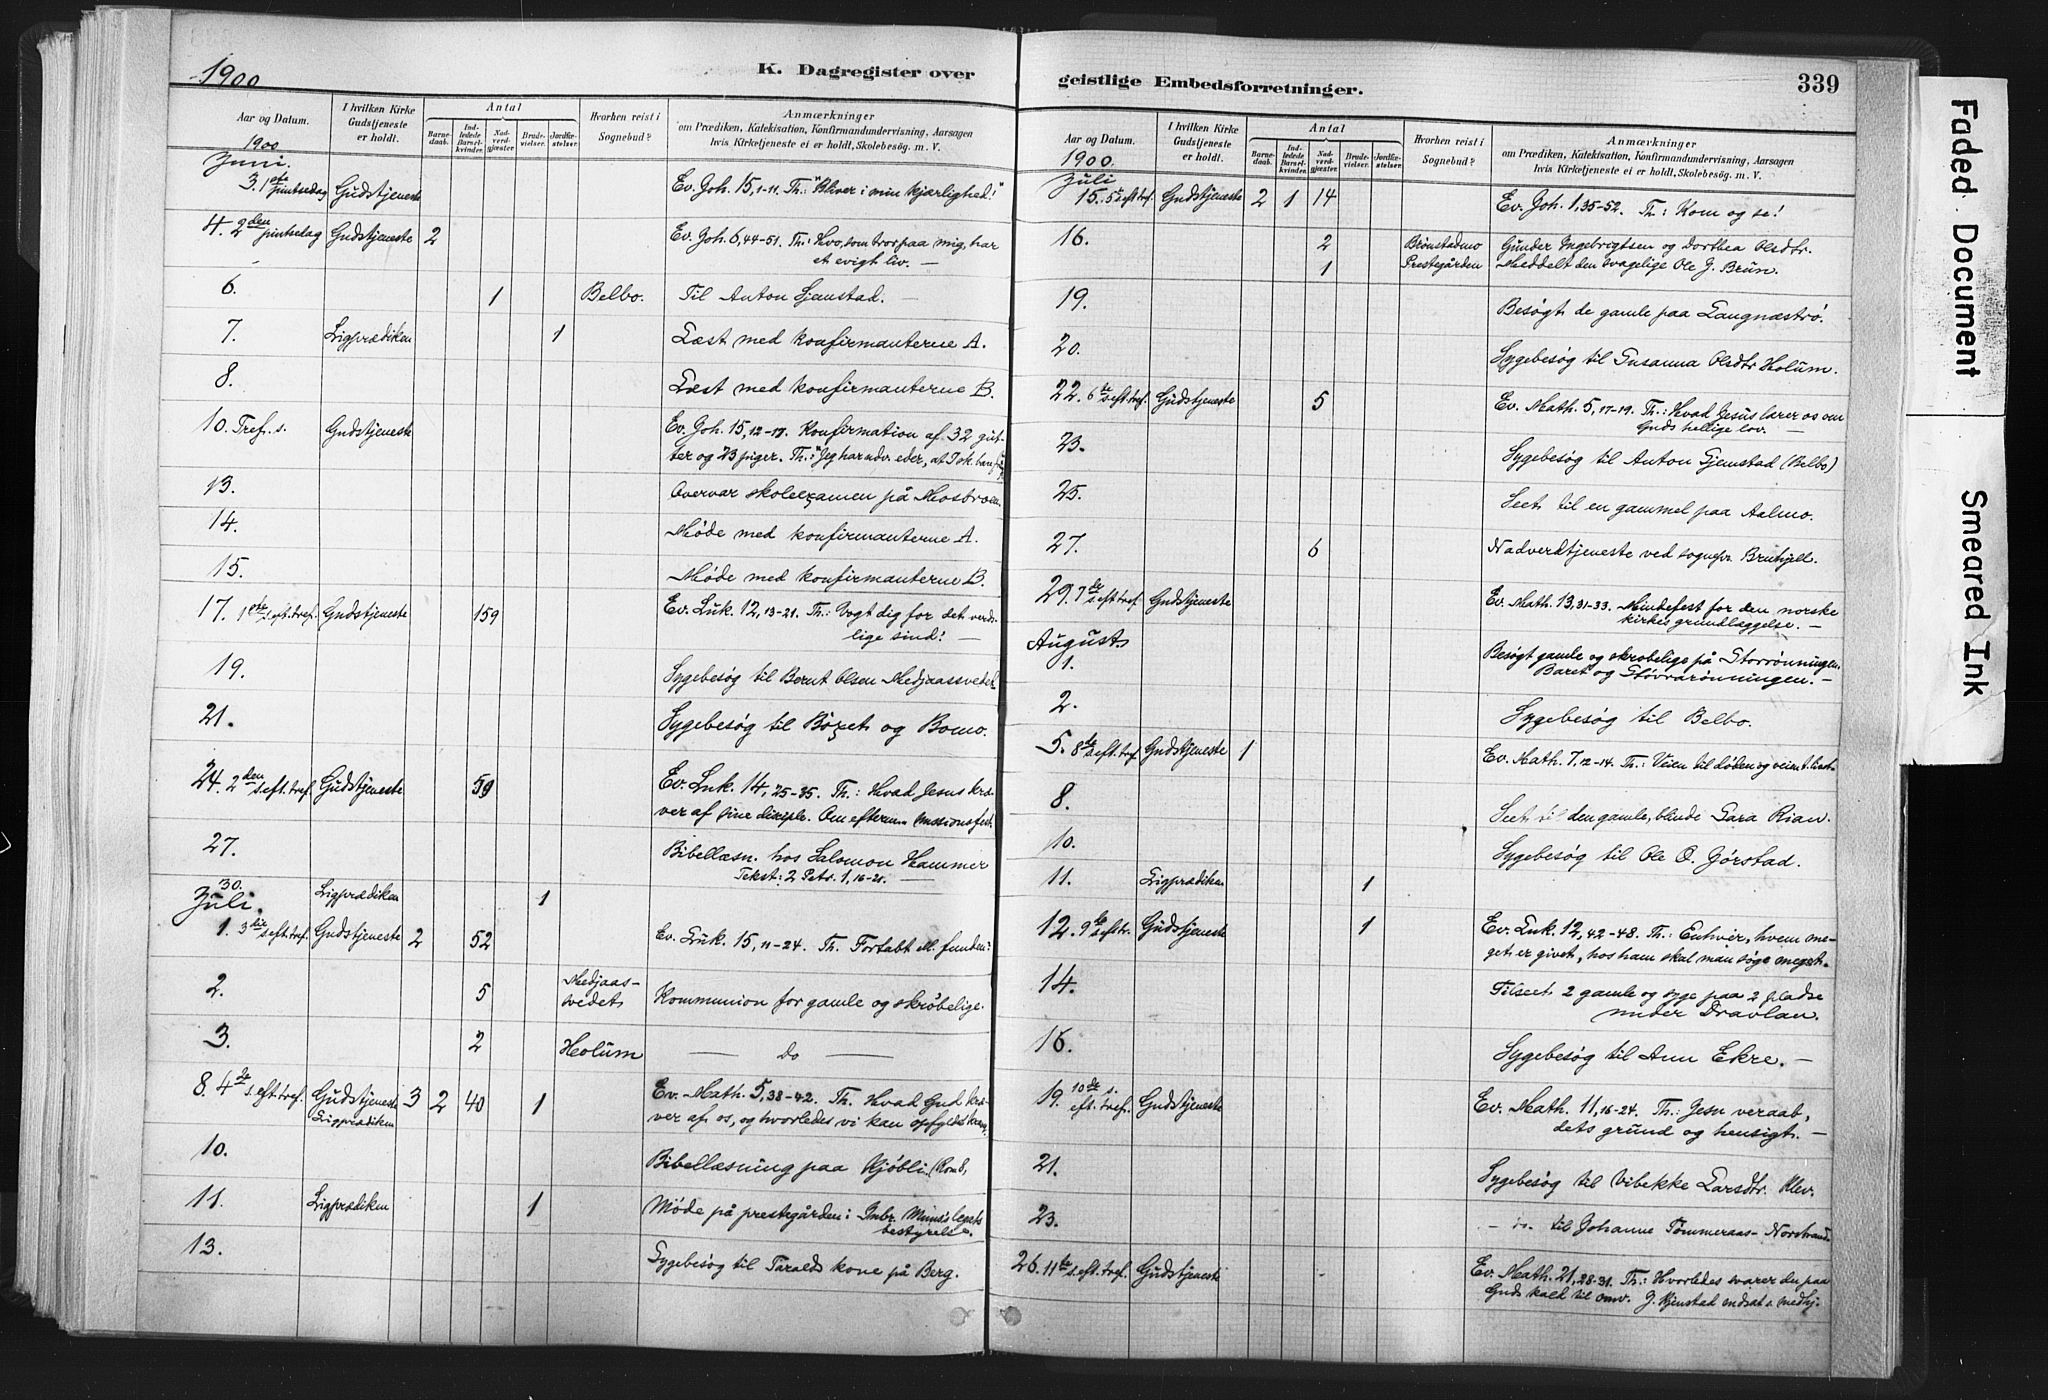 1900
K. Dagregister over
Aar og Datum.
I hvilken Kirke Gudstjeneste er holdt.
Antal
Barnedaab.
Indledede Barselkvinder.
Nadverdgjæster
Brudevielser.
Jordfæstelser.
Hvorhen reist i Sognebud?
Anmærkninger
om Prædiken, Katekisation, Konfirmandundervisning, Aarsagen
hvis Kirketjeneste ei er holdt, Skolebesøg. m. V.
1900
Juni.
3. 1ste pintsedag Gudstjeneste Ev. Joh. 15,1-11. Th: "Bliver i min kjærlighed!"
4. 2den pintsedag Gudstjeneste 2 Ev. Joh. 6,44-51. Th: Hvo, som tror paa mig, har
et evigt liv. —
6. 1 Belbo. Til Anton Gjemstad. —
7. Ligprædiken 1 Læst med konfirmanterne A.
8. Læst med konfirmanterne B.
10. Tref. s. Gudstjeneste Ev. Joh. 15,12-17. Konfirmation af 32 gut-
ter og 23 piger. Th.: "Jeg har udv. eder, at I sk. bære
13. Overvar skoleexamen på Mosbroen.
14. Møde med konfirmanterne A.
15. Møde med konfirmanterne B.
17. 1ste s. eft. tref. Gudstjeneste 159 Ev. Luk. 12,13-21. Th: Vogt dig for det verds-
lige sind! —
19. Sygebesøg til Bernt Olsen Medjaasvedet
21. Sygebesøg til Böret og Bomo.
24. 2den s. eft. tref. Gudstjeneste 59 Ev. Luk. 14,25-35. Th.: Hvad Jesus kræ-
ver af sine disciple. Om efterm. missionsfest.
27. Bibellæsn. hos Salomon Hammer
Tekst: 2 Petr. 1,16-21. —
30. Ligprædiken 1
Juli.
1. 3die s. eft. tref. Gudstjeneste 2 52 Ev. Luk. 15,11-24. Th. Fortabt ell. funden?
2. 5 Medjaas-
vedet Kommunion for gamle og skrøbelige.
3. 2 Holum — do —
8. 4de s. eft. tref. Gudstjeneste 3 2 40 1 Ev. Math. 5,38-42. Th. Hvad Gud kræ-
Ligprædiken ver af os, og hvorledes vi kan opfylde krav.
10. Bibellæsning paa Kjöbli (Rom 8,
11. Ligprædiken 1 Møde på prestegården i Inbr. Muus's legats
bestyrelse.
13. Sygebesøg til Taralds kone på Berg.
geistlige Embedsforretninger.
339
Aar og Datum.
I hvilken Kirke Gudstjeneste er holdt.
Antal
Barnedaab.
Indledede Barselkvinder.
Nadverdgjæster.
Brudevielser.
Jordfæstelser.
Hvorhen reist i Sognebud?
Anmærkninger
om Prædiken, Katekisation, Konfirmandundervisning, Aarsagen
hvis Kirketjeneste ei er holdt, Skolebesøg. m. V.
1900.
Juli
15. 5te s. eft. tref. Gudstjeneste 2 1 14 Ev. Joh. 1,35-52. Th: Kom og se!
16. 2 Brønstadmo Gunder Ingebrigtsen og Dorthea Olsdtr.
1 Prestegården Meddelt den svagelige Ole J. Brün.
19. Besøgt de gamle paa Langnæstrø.
20. Sygebesøg til Susanna Olsdtr Holum.
22. 6te s. eft. tref. Gudstjeneste 5 Ev. Math. 5,17-19. Th.: Hvad Jesus lærer os om
Guds hellige lov. —
23. Sygebesøg til Anton Gjemstad (Belbo)
25. Seet til en gammel paa Aalmo.
27. 6 Nadverdtjeneste ved sognepr. Bruhjell.
29. 7de s. eft. tref. Gudstjeneste Ev. Math. 13,31-33. Mindefest for den norske
kirkes grundlæggelse. —
August
1. Besøgt gamle og skrøbelige på Storrønningen,
Baret og Støvrarønningen. —
2. Sygebesøg til Belbo.
5. 8de s. eft. tref. Gudstjeneste 1 Ev. Math. 7.12-14. Th: Veien til døden og veien t. livet.
8. Seet til den gamle, blinde Sara Rian.
10. Sygebesøg til Ole O. Gjørstad.
11. Ligprædiken 1
12. 9de s. eft. tr. Gudstjeneste 1 Ev. Luk. 12,42-48. Th: Enhver, hvem me-
get er givet, hos ham skal man søge meget.
14. Tilseet 2 gamle og syge paa 2 pladse
under Dravlan.
16. Sygebesøg til Ann Ekre. —
19. 10de s. eft. tref. Gudstjeneste Ev. Math. 11,16-24. Th.: Jesu veraab,
dets grund og hensigt. —
21. Sygebesøg til Vibekke Larsdtr. Klev.
23. — do. til Johanne Tømmeraas - Norstrand
26. 11te s. eft. tref. Gudstjeneste Ev. Math. 21,28-31. Th: Hvorledes svarer du paa
Guds kald til omv. J. Kjenstad endsat s. medhj.
Faded Document
Smeared Ink